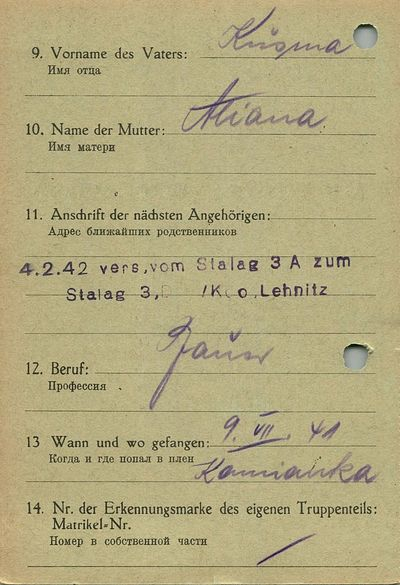 9. Vorname des Vaters: Kusma
Имя отца
10. Name der Mutter:
Имя матери
11. Anschrift der nächsten Angehörigen:
Адрес ближайших родственников
4.2.42 vers,vom Stalag 3 A zum
Stalag 3, Lehnitz
12. Beruf:
Профессия
13 Wann und wo gefangen: 9. VII. 41
Когда и где попал в плен Kamianka
14. Nr. der Erkennungsmarke des eigenen Truppenteils:
Matrikel-Nr.
Номер в собственной части